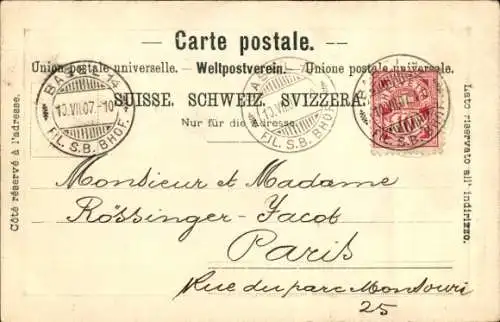 Carte postale.
Union postale universelle. — Weltpostverein. — Unione postale universale.
SUISSE. SCHWEIZ. SVIZZERA.
Nur für die Adresse.
Côté réservé à l'adresse.
Lato riservato all' indirizzo.
BASEL 14
10.VII.07.-10
FIL. S.B. BHOF.
FIL. S.B. BHOF.
Monsieur et Madame
Rössinger-Jacob
Paris
Rue du parc Monsouri
25